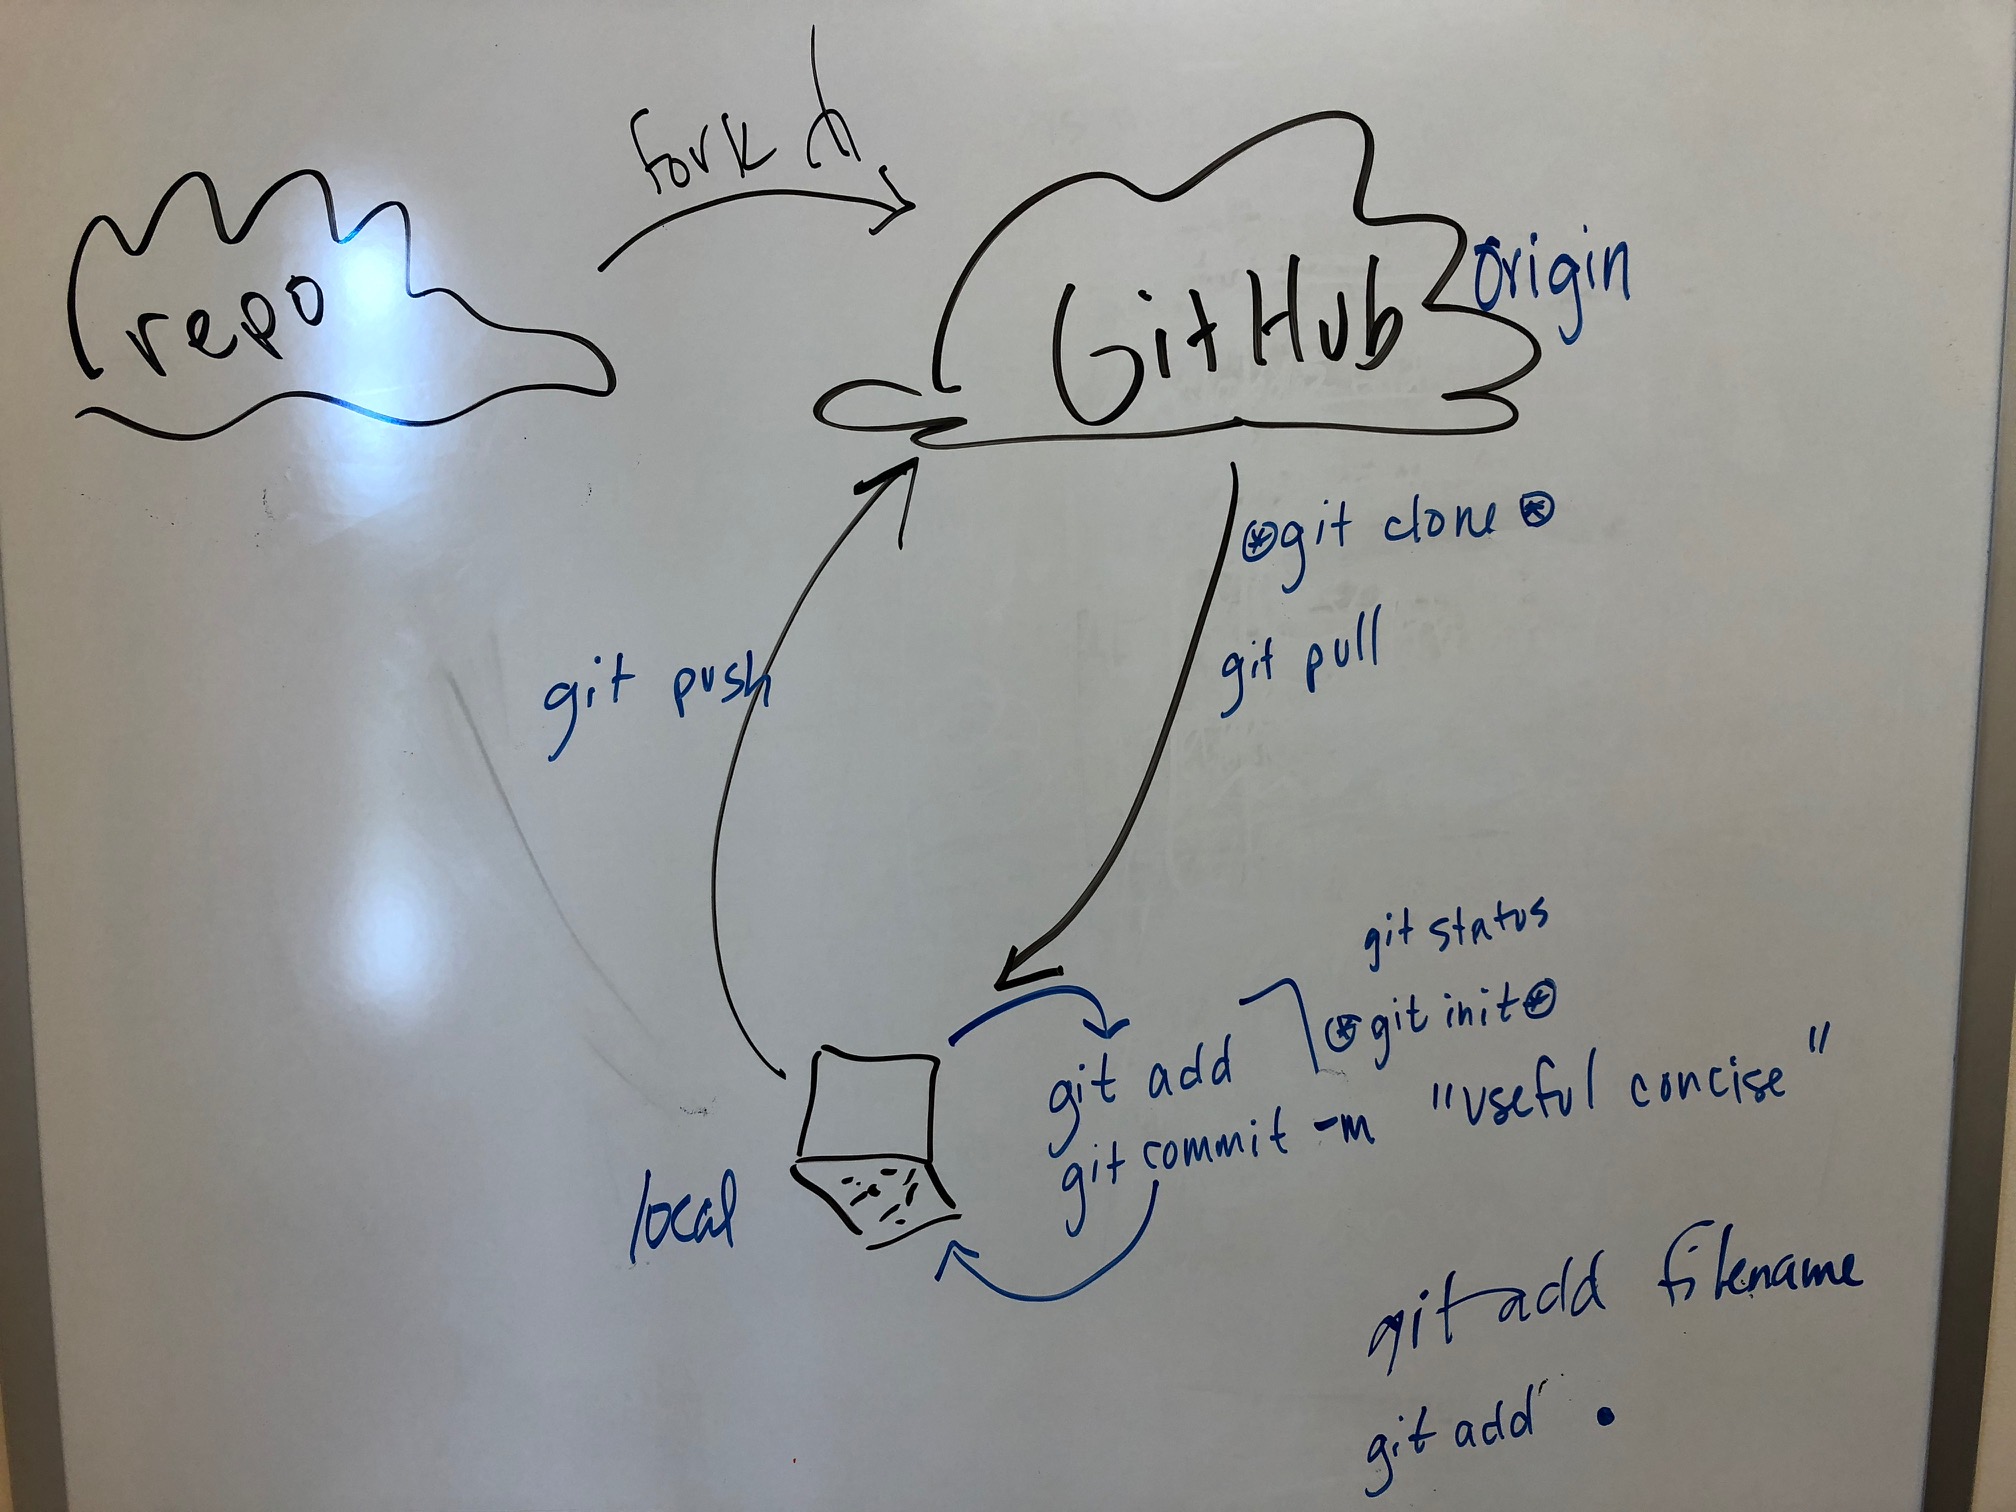 fork
repo
GitHub
origin
git clone
git pull
git push
git status
git init
git add
git commit -m "useful concise"
local
git add filename
git add .